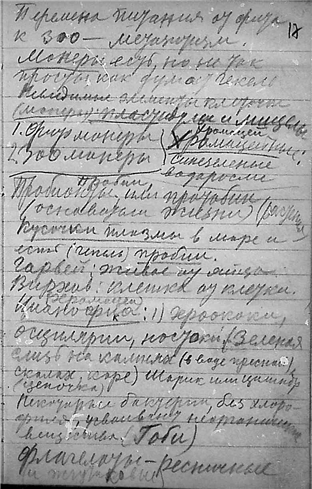 17
Перемена питания от фито
к зоо — метатрофизм.
Монеры есть, но не так
просты, как думал Геккель
элементы клетки
(монеры) пластиды и мицеллы
1. Фитомонеры { хромацеи
Хромацейные:
2. Зоомонеры { синезеленые
водоросли
пробии,
Пробионты, или протобии
(основатели жизни)
Кусочки плазмы в море и
есть (Геккель) пробии.
Гарвей: живое из яйца
Вирхов: клетка от клетки.
хромацеи
Цианофиц.: 1) Хроококи,
осциллярии, ностоки. (Зеленая
слизь на камнях (в воде пресной),
скалах, коре) Шарик или цилиндр
(цепочка)
Некоторые бактерии, без хлоро
филла, усваивают неорганические
вещества. (Гоби)
Флагелаты — ресничные
и жгутиковые